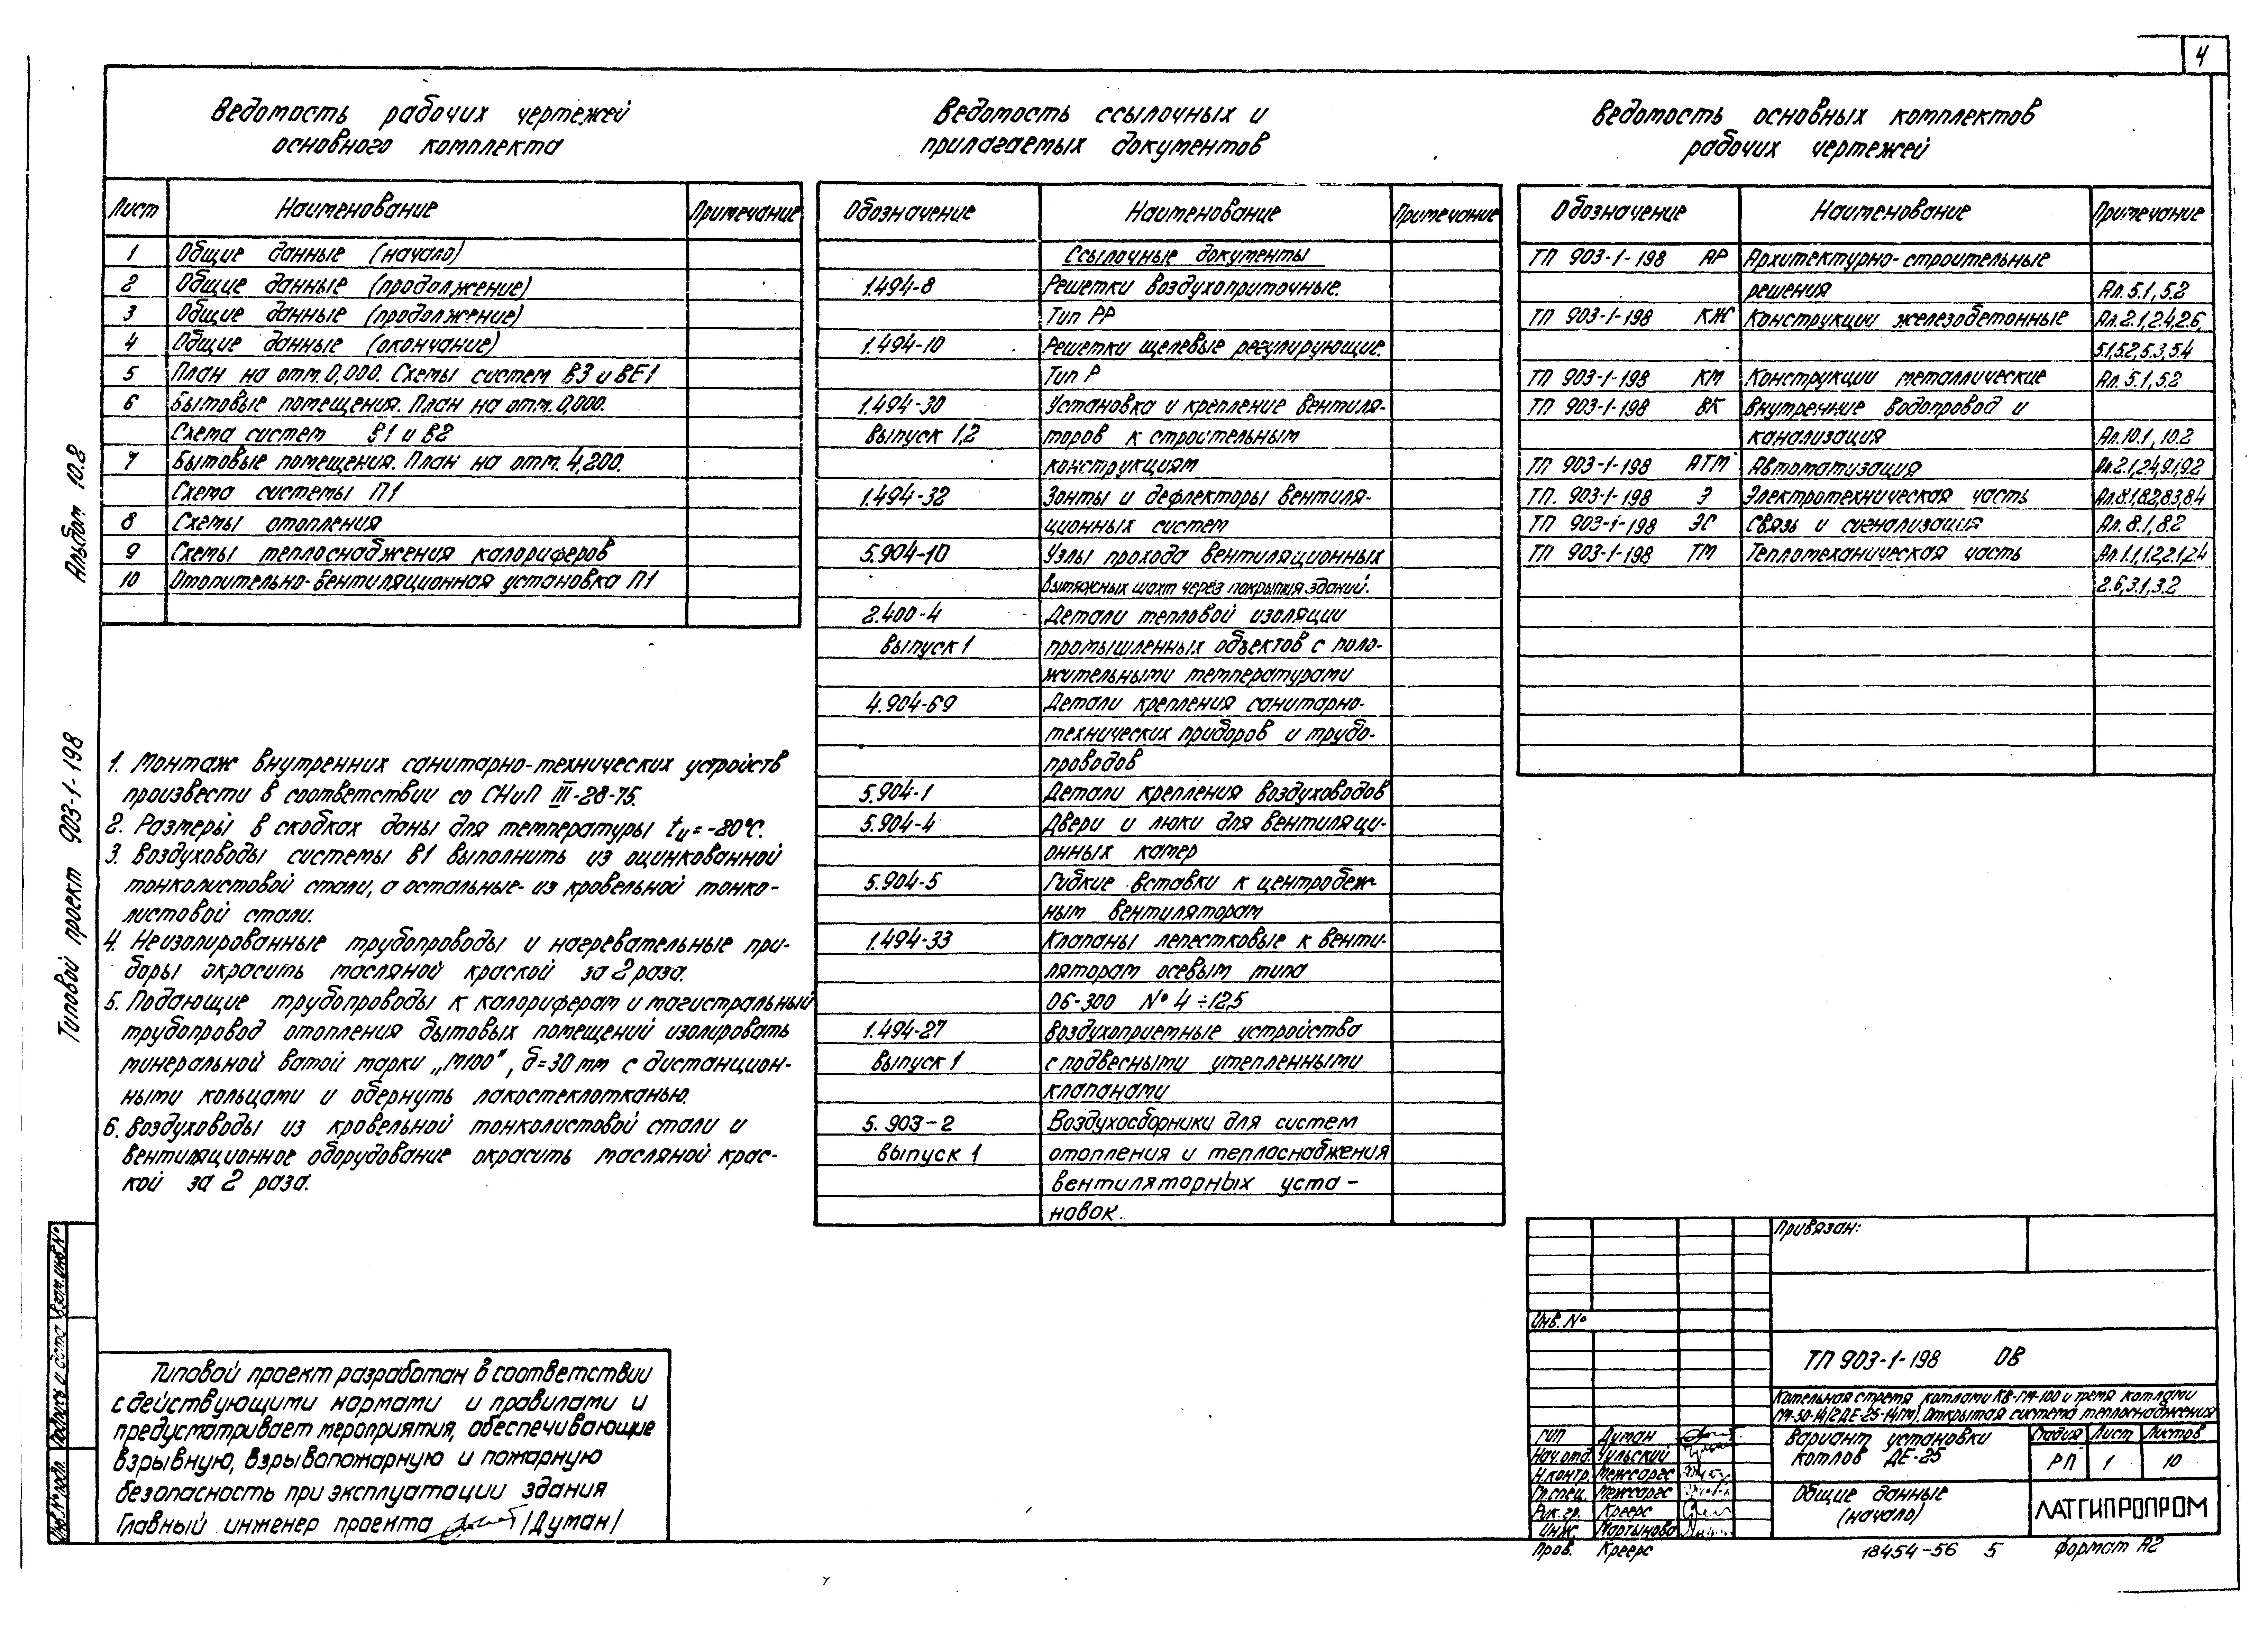 4
Ведомость рабочих чертежей
основного комплекта
Лист Наименование Примечание
1 Общие данные (начало)
2 Общие данные (продолжение)
3 Общие данные (продолжение)
4 Общие данные (окончание)
5 План на отм. 0,000. Схемы систем В3 и ВЕ1
6 Бытовые помещения. План на отм. 0,000.
Схема систем В1 и В2
7 Бытовые помещения. План на отм. 4,200.
Схема системы П1
8 Схемы отопления
9 Схемы теплоснабжения калориферов
10 Отопительно-вентиляционная установка П1
1. Монтаж внутренних санитарно-технических устройств
произвести в соответствии со СНиП III-28-75.
2. Размеры в скобках даны для температуры
3. Воздуховоды системы В1 выполнить из оцинкованной
тонколистовой стали, а остальные- из кровельной тонко-
листовой стали.
4. Неизолированные трубопроводы и нагревательные при-
боры окрасить масляной краской за 2 раза.
5. Подающие трубопроводы к калориферам и магистральный
трубопровод отопления бытовых помещений изолировать
минеральной ватой марки „М100", δ=30мм с дистанцион-
ными кольцами и обернуть лакостеклотканью.
6. Воздуховоды из кровельной тонколистовой стали и
вентиляционное оборудование окрасить масляной крас-
кой за 2 раза.
Типовой проект разработан в соответствии
с действующими нормами и правилами и
предусматривает мероприятия, обеспечивающие
взрывную, взрывопожарную и пожарную
безопасность при эксплуатации здания
Главный инженер проекта /Думан/
Ведомость ссылочных и
прилагаемых документов
Обозначение Наименование Примечание
Ссылочные документы
1.494-8 Решетки воздухоприточные.
Тип РР
1.494-10 Решетки щелевые регулирующие.
Тип Р
1.494-30 Установка и крепление вентиля-
выпуск 1,2 торов к строительным
конструкциям
1.494-32 Зонты и дефлекторы вентиля-
ционных систем
5.904-10 Узлы прохода вентиляционных
вытяжных шахт через покрытия зданий.
2.400-4 Детали тепловой изоляции
выпуск 1 промышленных объектов с поло-
жительными температурами
4.904-69 Детали крепления санитарно-
технических приборов и трубо-
проводов
5.904-1 Детали крепления воздуховодов
5.904-4 Двери и люки для вентиляци-
онных камер
5.904-5 Гибкие вставки к центробеж-
ным вентиляторам
1.494-33 Клапаны лепестковые к венти-
ляторам осевым типа
06-300 № 4÷12,5
1.494-27 Воздухоприемные устройства
выпуск 1 с подвесными утепленными
клапанами
5.903-2 Воздухосборники для систем
выпуск 1 отопления и теплоснабжения
вентиляторных уста-
новок.
Ведомость основных комплектов
рабочих чертежей
Обозначение Наименование Примечание
ТП 903-1-198 АР Архитектурно-строительные
решения Ал. 5.1, 5.2
ТП 903-1-198 КЖ Конструкции железобетонные Ал. 2.1, 2.4, 2.6,
5.1, 5.2, 5.3, 5.4
ТП 903-1-198 КМ Конструкции металлические Ал. 5.1, 5.2
ТП 903-1-198 ВК Внутренние водопровод и
канализация Ал. 10.1, 10.2
ТП 903-1-198 АТМ Автоматизация Ал. 2.1, 2.4, 9.1, 9.2
ТП. 903-1-198 Э Электротехническая часть Ал. 8.1, 8.2, 8.3, 8.4
ТП 903-1-198 ЭС Связь и сигнализация Ал. 8.1, 8.2
ТП 903-1-198 ТМ Тепломеханическая часть Ал. 1.1, 1.2, 2.1, 2.4
2.6, 3.1, 3.2
Привязан:
Инв. №
ТП 903-1-198 ОВ
Котельная с тремя котлами КВ-ГМ-100 и тремя котлами
ГМ-50-14/2ДЕ-25-14ГМ/. Открытая система теплоснабжения
ГИП Думан
Нач. отд. Чульский
Н. контр. Межсаргс
Гл. спец. Межсаргс
Рук. гр. Креерс
Инж. Мартынова
Пров. Креерс
Вариант установки
котлов ДЕ-25
Стадия Лист Листов
РП 1 10
Общие данные
(начало)
ЛАТГИПРОПРОМ
18454-56 5 Формат А2
Альбом 10.8
Типовой проект 903-1-198
Взам. инв. №
Подпись и дата
Инв. № подл.